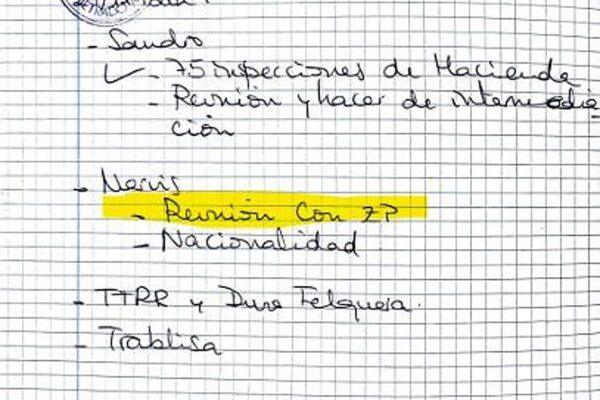 - Sandro
✓ - 75 inspecciones de Hacienda
- Reunión y hacer de intermedia-
ción
- Nervis
- Reunión con ZP
- Nacionalidad
- TTRR y Duro Felguera.
- Trablisa